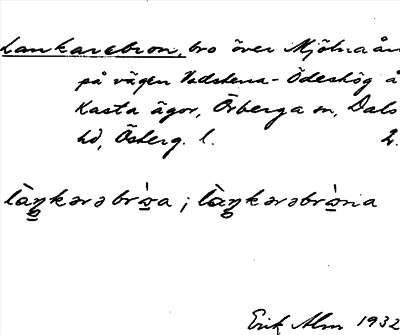 Lankarebron, bro över Mjölna ån
på vägen Vadstena - Ödeshög å
Kasta ägor, Örberga sn, Dals
hd, Österg. l. 2.
làŋkərəbrὼa ; làŋkərəbrὼna
Erik Alm 1932